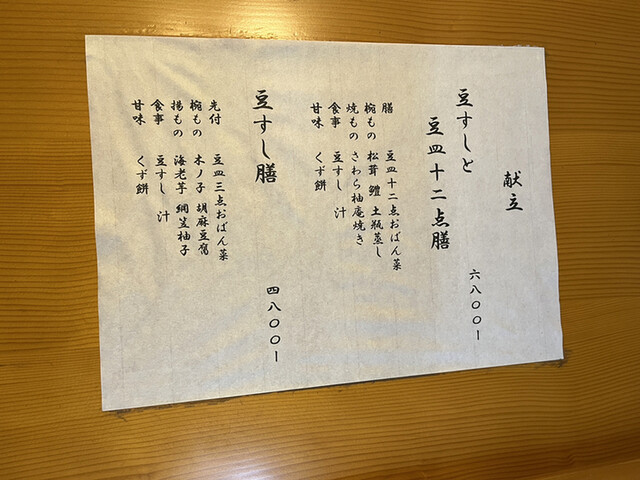 献立
豆すしと
豆皿十二点膳
六八〇〇ー
膳 豆皿十二点おばん菜
椀もの 松茸 鱧 土瓶蒸し
焼もの さわら柚庵焼き
食事 豆すし 汁
甘味 くず餅
豆すし膳
四八〇〇ー
先付 豆皿三点おばん菜
椀もの 木ノ子 胡麻豆腐
揚もの 海老芋 綱笠柚子
食事 豆すし 汁
甘味 くず餅